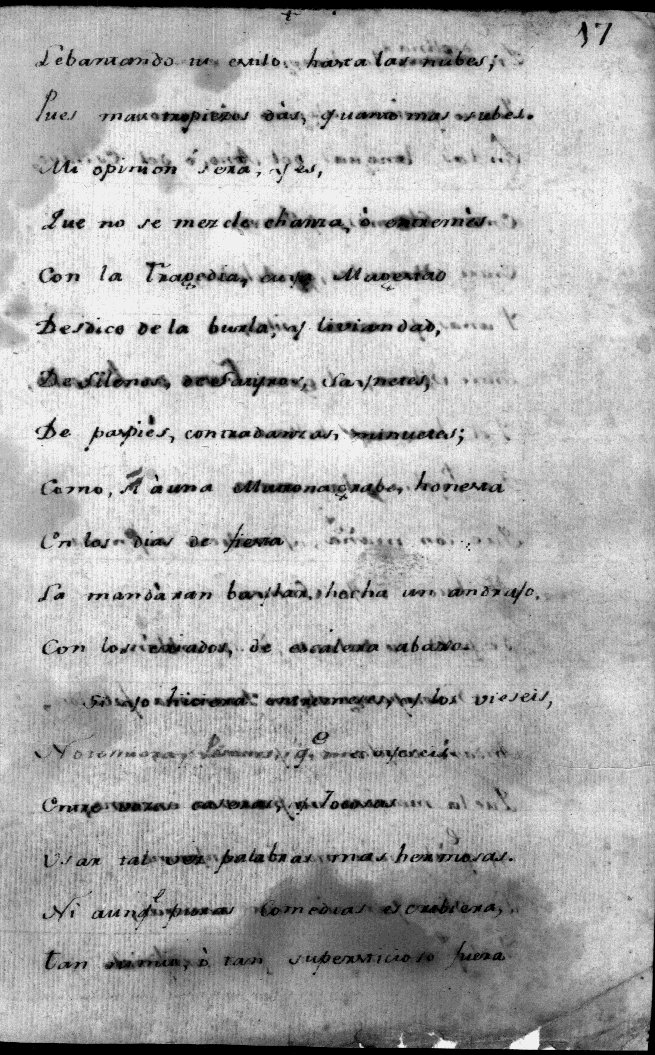 17
Lebantando tu estilo hasta las nubes;
Pues mas tropiezos dás, quanto mas subes.
Mi opinion sera, y es,
Que no se mezcle chanza, ò entremès
Con la Tragedia, cuya Magestad
Desdice de la burla, y liviandad,
De Silenos, de Satiros, Saynetes,
De paspiés, contradanzas, minuetes;
Como, si à una Matrona grabe, honesta
En los dias de fiesta
La mandàran baylar, hecha un andrajo,
Con los criados, de escalera abaxo.
Si yo hiciera entremeses, y los vieseis,
No temiera, Pisones, q.e me oyeseis
Entre voces caseras, y Jocosas
Usar tal vez palabras mas hermosas.
Ni aunq.e puras Comedias escribiera,
tan nimio, ò tan supersticioso fuera